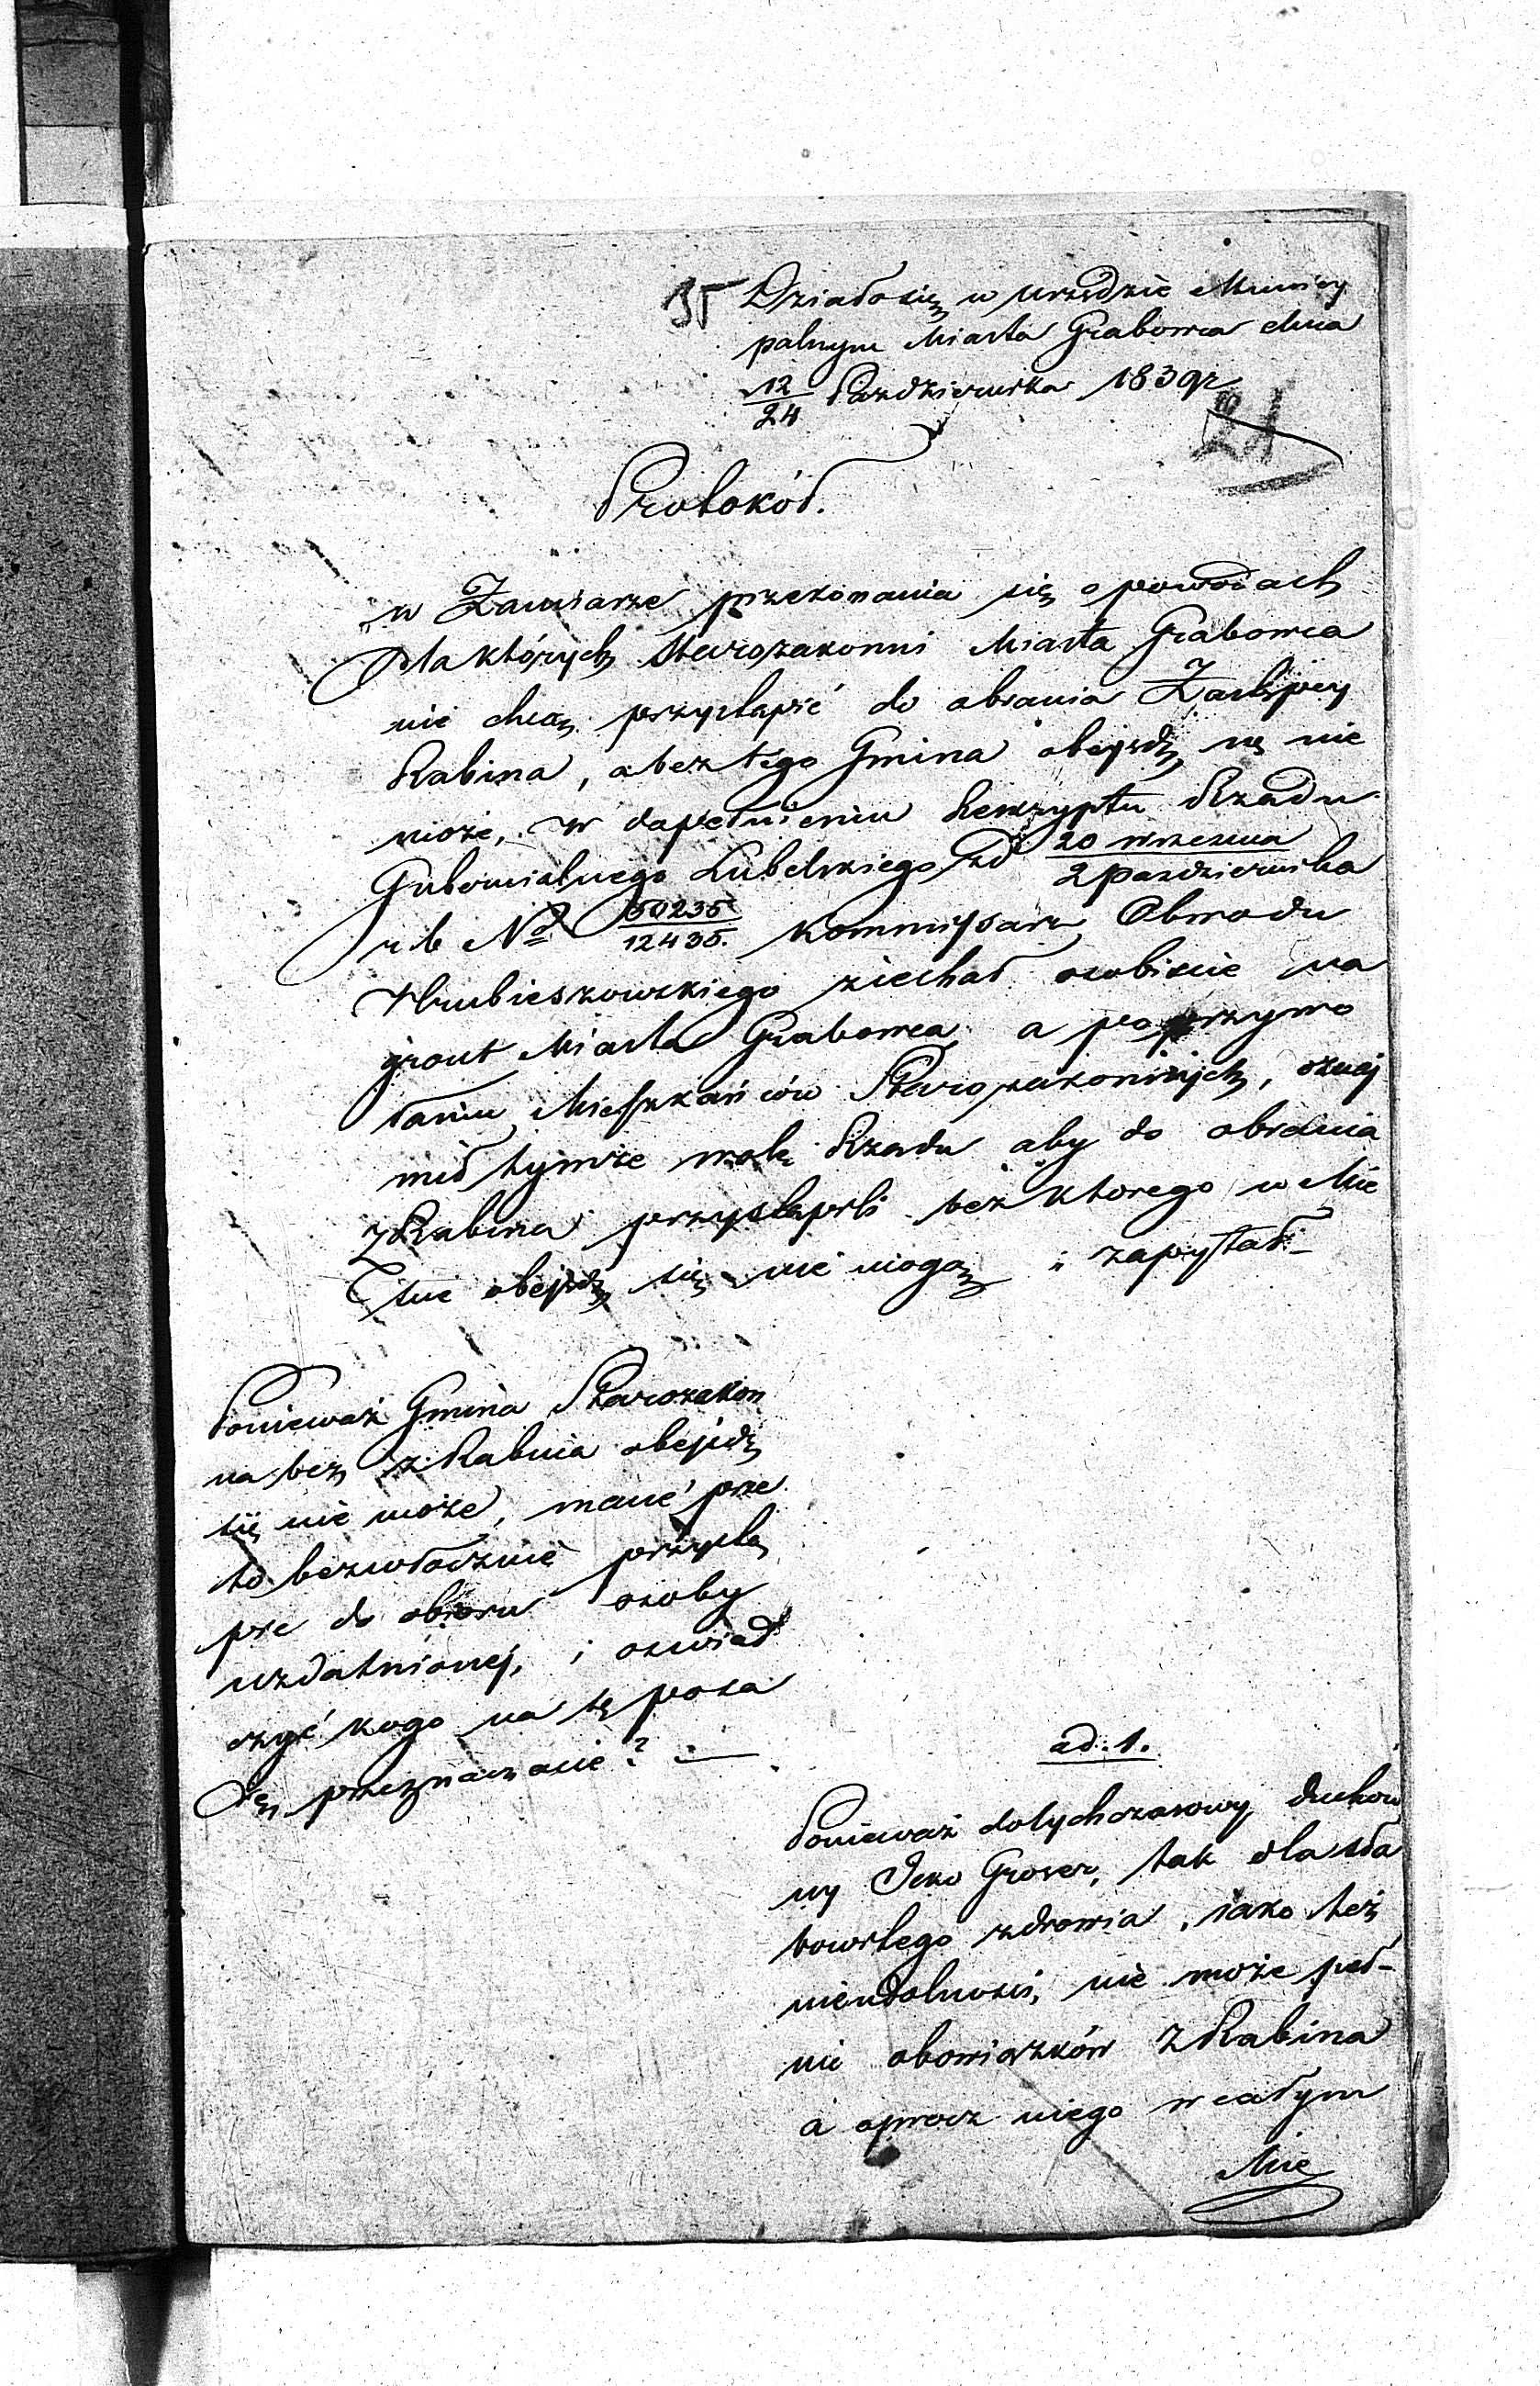 35 Działo się w urzędzie Municy
palnym Miasta Grabowca dnia
12/24 Pazdziernika 1839 r
21
Protokół.
w Zamiarze przekonania się o powodach
Dla których Starozakonni Miasta Grabowca
nie chcą przystąpić do obrania Zastępcy
Rabina, a bez tego Gmina obejsdź się nie
może, w dopełnieniu Reskryptu Rządu
Gubernialnego Lubelskiego zd 20 wrzesnia / 2 pazdziernika
r b No 50235/12435. Kommissarz Obwodu
Hrubieszowskiego ziechał osobiscie na
gront Miasta Grabowca a po przywo
łaniu Mieszkańców Starozakonnych, oznaj
mił tymże wolę Rządu aby do obrania
ZRabina przystąpili bez ktorego w Mie
scie obejsdź się nie mogą i zapytał –
Ponieważ Gmina Starozakon
na bez zRabina obejsdź
się nie może, macie prze
to bezwłocznie przystą
pic do obioru osoby
uzdatnionej, i oswiad
czyć kogo na tę posa
dę przeznaczacie? –
ad. 1.
Ponieważ dotychczasowy duchow
ny Icko Groser, tak dla sła
bowitego zdrowia, iako też
nieudolnosci, nie może peł-
nic obowiązków ZRabina
a oprocz niego w całym
Mie